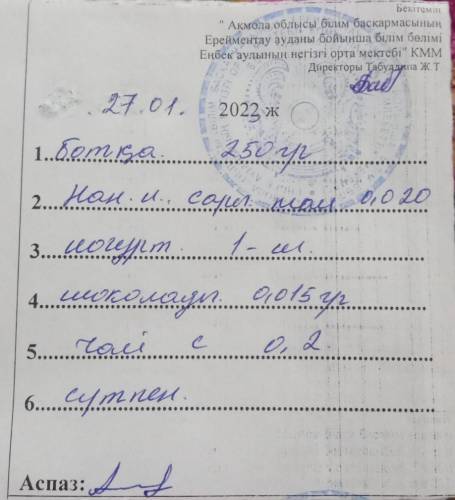 Бекітемін
" Ақмола облысы білім басқармасының
Ерейментау ауданы бойынша білім бөлімі
Еңбек аулының негізгі орта мектебі" КММ
Директоры Табулдина Ж Т
27.01. 2022 ж
1. ботқа. 250 гр
2. Нан. и. сары май 0,020
3. йогурт. 1 - ш.
4. шоколады. 0,015 гр
5. чай с 0,2.
6. сүтпен.
Аспаз: